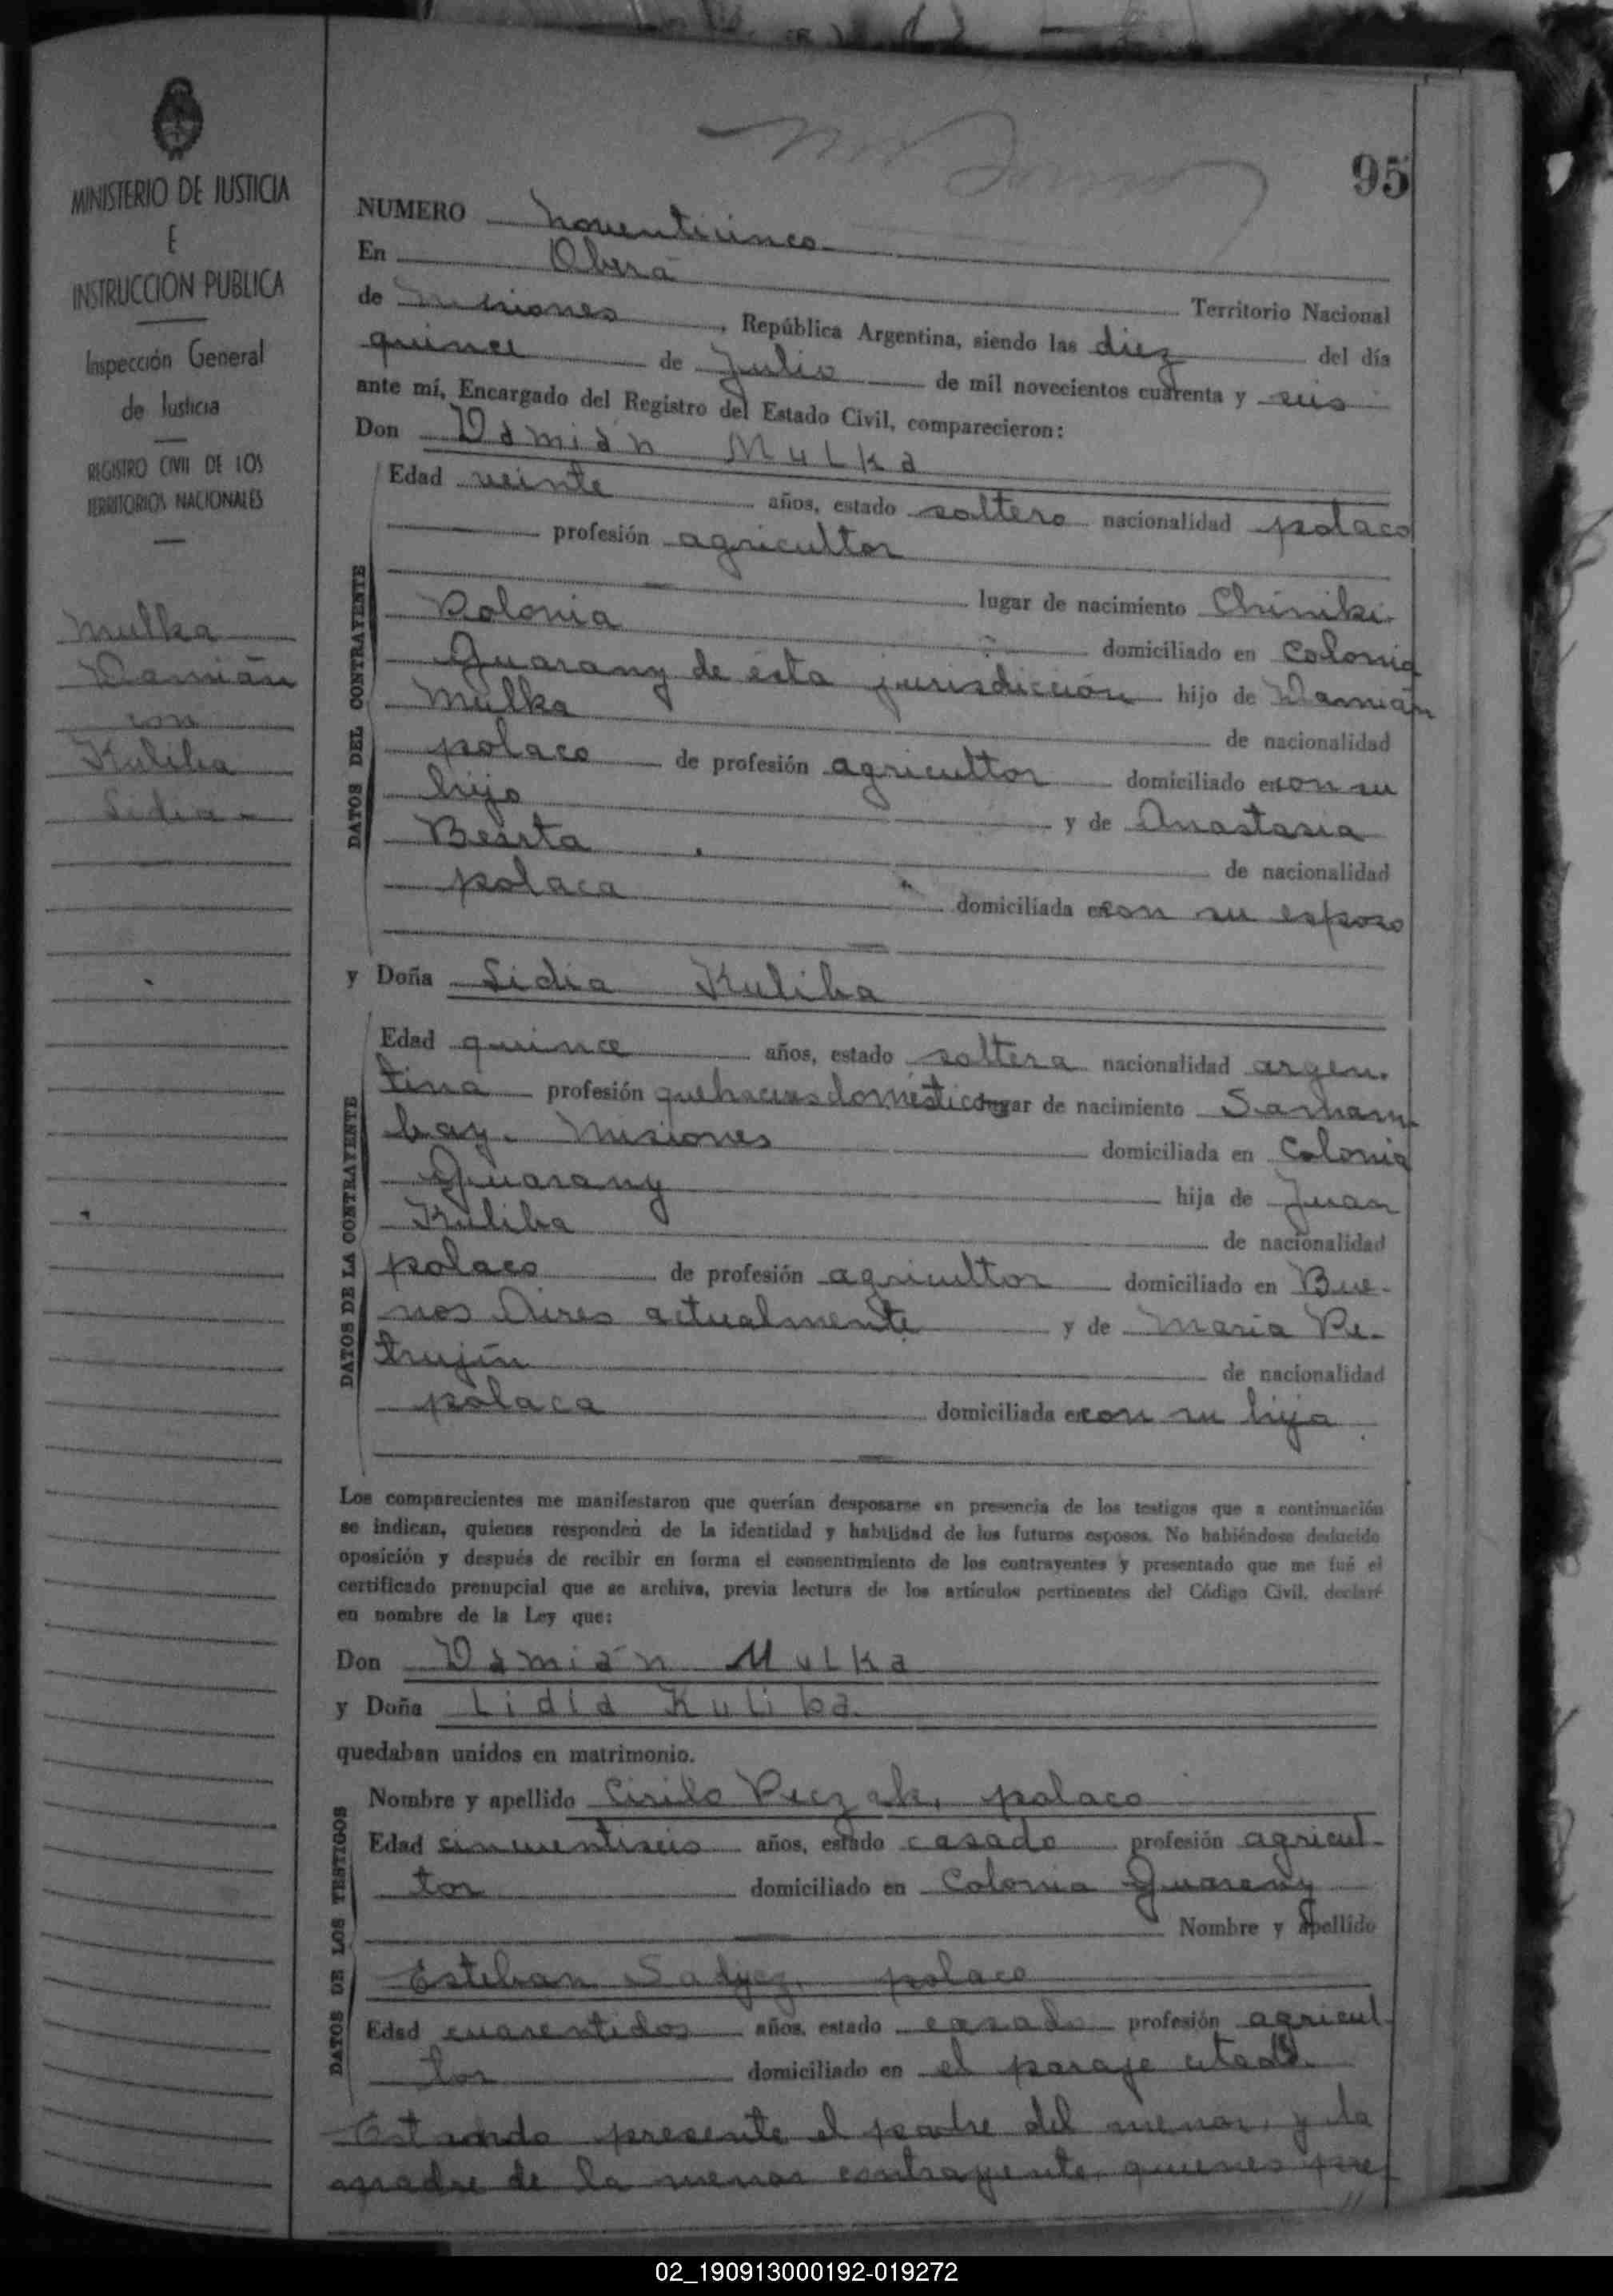 95
MINISTERIO DE JUSTICIA
E
INSTRUCCION PUBLICA
Inspección General
de Justicia
REGISTRO CIVIL DE LOS
TERRITORIOS NACIONALES
Mulka
Damián
con
Kuliba
Lidia
NUMERO noventicinco
En Oberá
Territorio Nacional
de Misiones, República Argentina, siendo las diez del día
quince de Julio de mil novecientos cuarenta y seis
ante mí, Encargado del Registro del Estado Civil, comparecieron:
Don Damián Mulka
DATOS DEL CONTRAYENTE
Edad veinte años, estado soltero nacionalidad polaco
profesión agricultor
lugar de nacimiento Chiniki
Polonia domiciliado en Colonia
Guarany de ésta jurisdicción hijo de Damián
Mulka de nacionalidad
polaco de profesión agricultor domiciliado en con su
hijo y de Anastasia
Besrta de nacionalidad
polaca domiciliada en con su esposo
y Doña Lidia Kuliba
DATOS DE LA CONTRAYENTE
Edad quince años, estado soltera nacionalidad argen-
tina profesión quehaceres domésticos lugar de nacimiento Samam-
bay. Misiones domiciliada en Colonia
Guarany hija de Juan
Kuliba de nacionalidad
polaco de profesión agricultor domiciliado en Bue-
nos Aires actualmente y de María Pe-
trujín de nacionalidad
polaca domiciliada en con su hija
Los comparecientes me manifestaron que querían desposarse en presencia de los testigos que a continuación
se indican, quienes responden de la identidad y habilidad de los futuros esposos. No habiéndose deducido
oposición y después de recibir en forma el consentimiento de los contrayentes y presentado que me fué el
certificado prenupcial que se archiva, previa lectura de los artículos pertinentes del Código Civil, declaré
en nombre de la Ley que:
Don Damián Mulka
y Doña Lidia Kuliba
quedaban unidos en matrimonio.
DATOS DE LOS TESTIGOS
Nombre y apellido Cirilo Peczak, polaco
Edad cincuentiseis años, estado casado profesión agricul-
tor domiciliado en Colonia Guarany
Nombre y apellido
Esteban Sadyez, polaco
Edad cuarentidos años, estado casado profesión agricul-
tor domiciliado en el paraje citado.
Estando presente el padre del menor, y la
madre de la menor contrayente, quienes pre
02_190913000192-019272